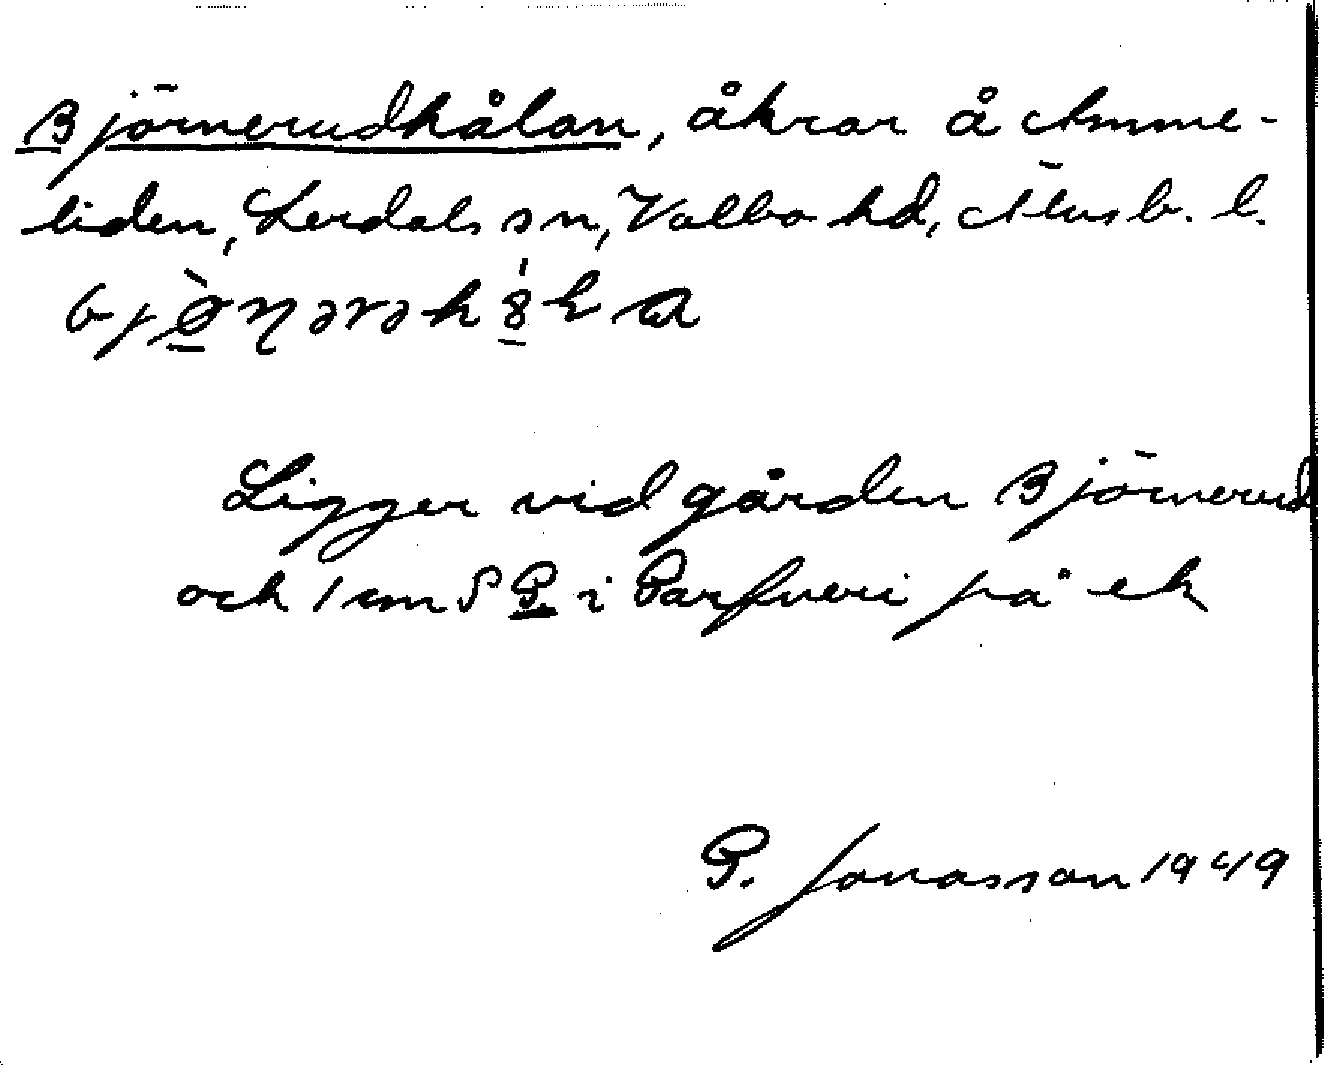 Björnerudhålan, åkrar å Amme-
liden, Lerdals sn, Valbo hd, Älvsb. l.
Ligger vid gården Björnerud
och 1 cm S P. i Parfveri på ek
P. Jonasson 1949